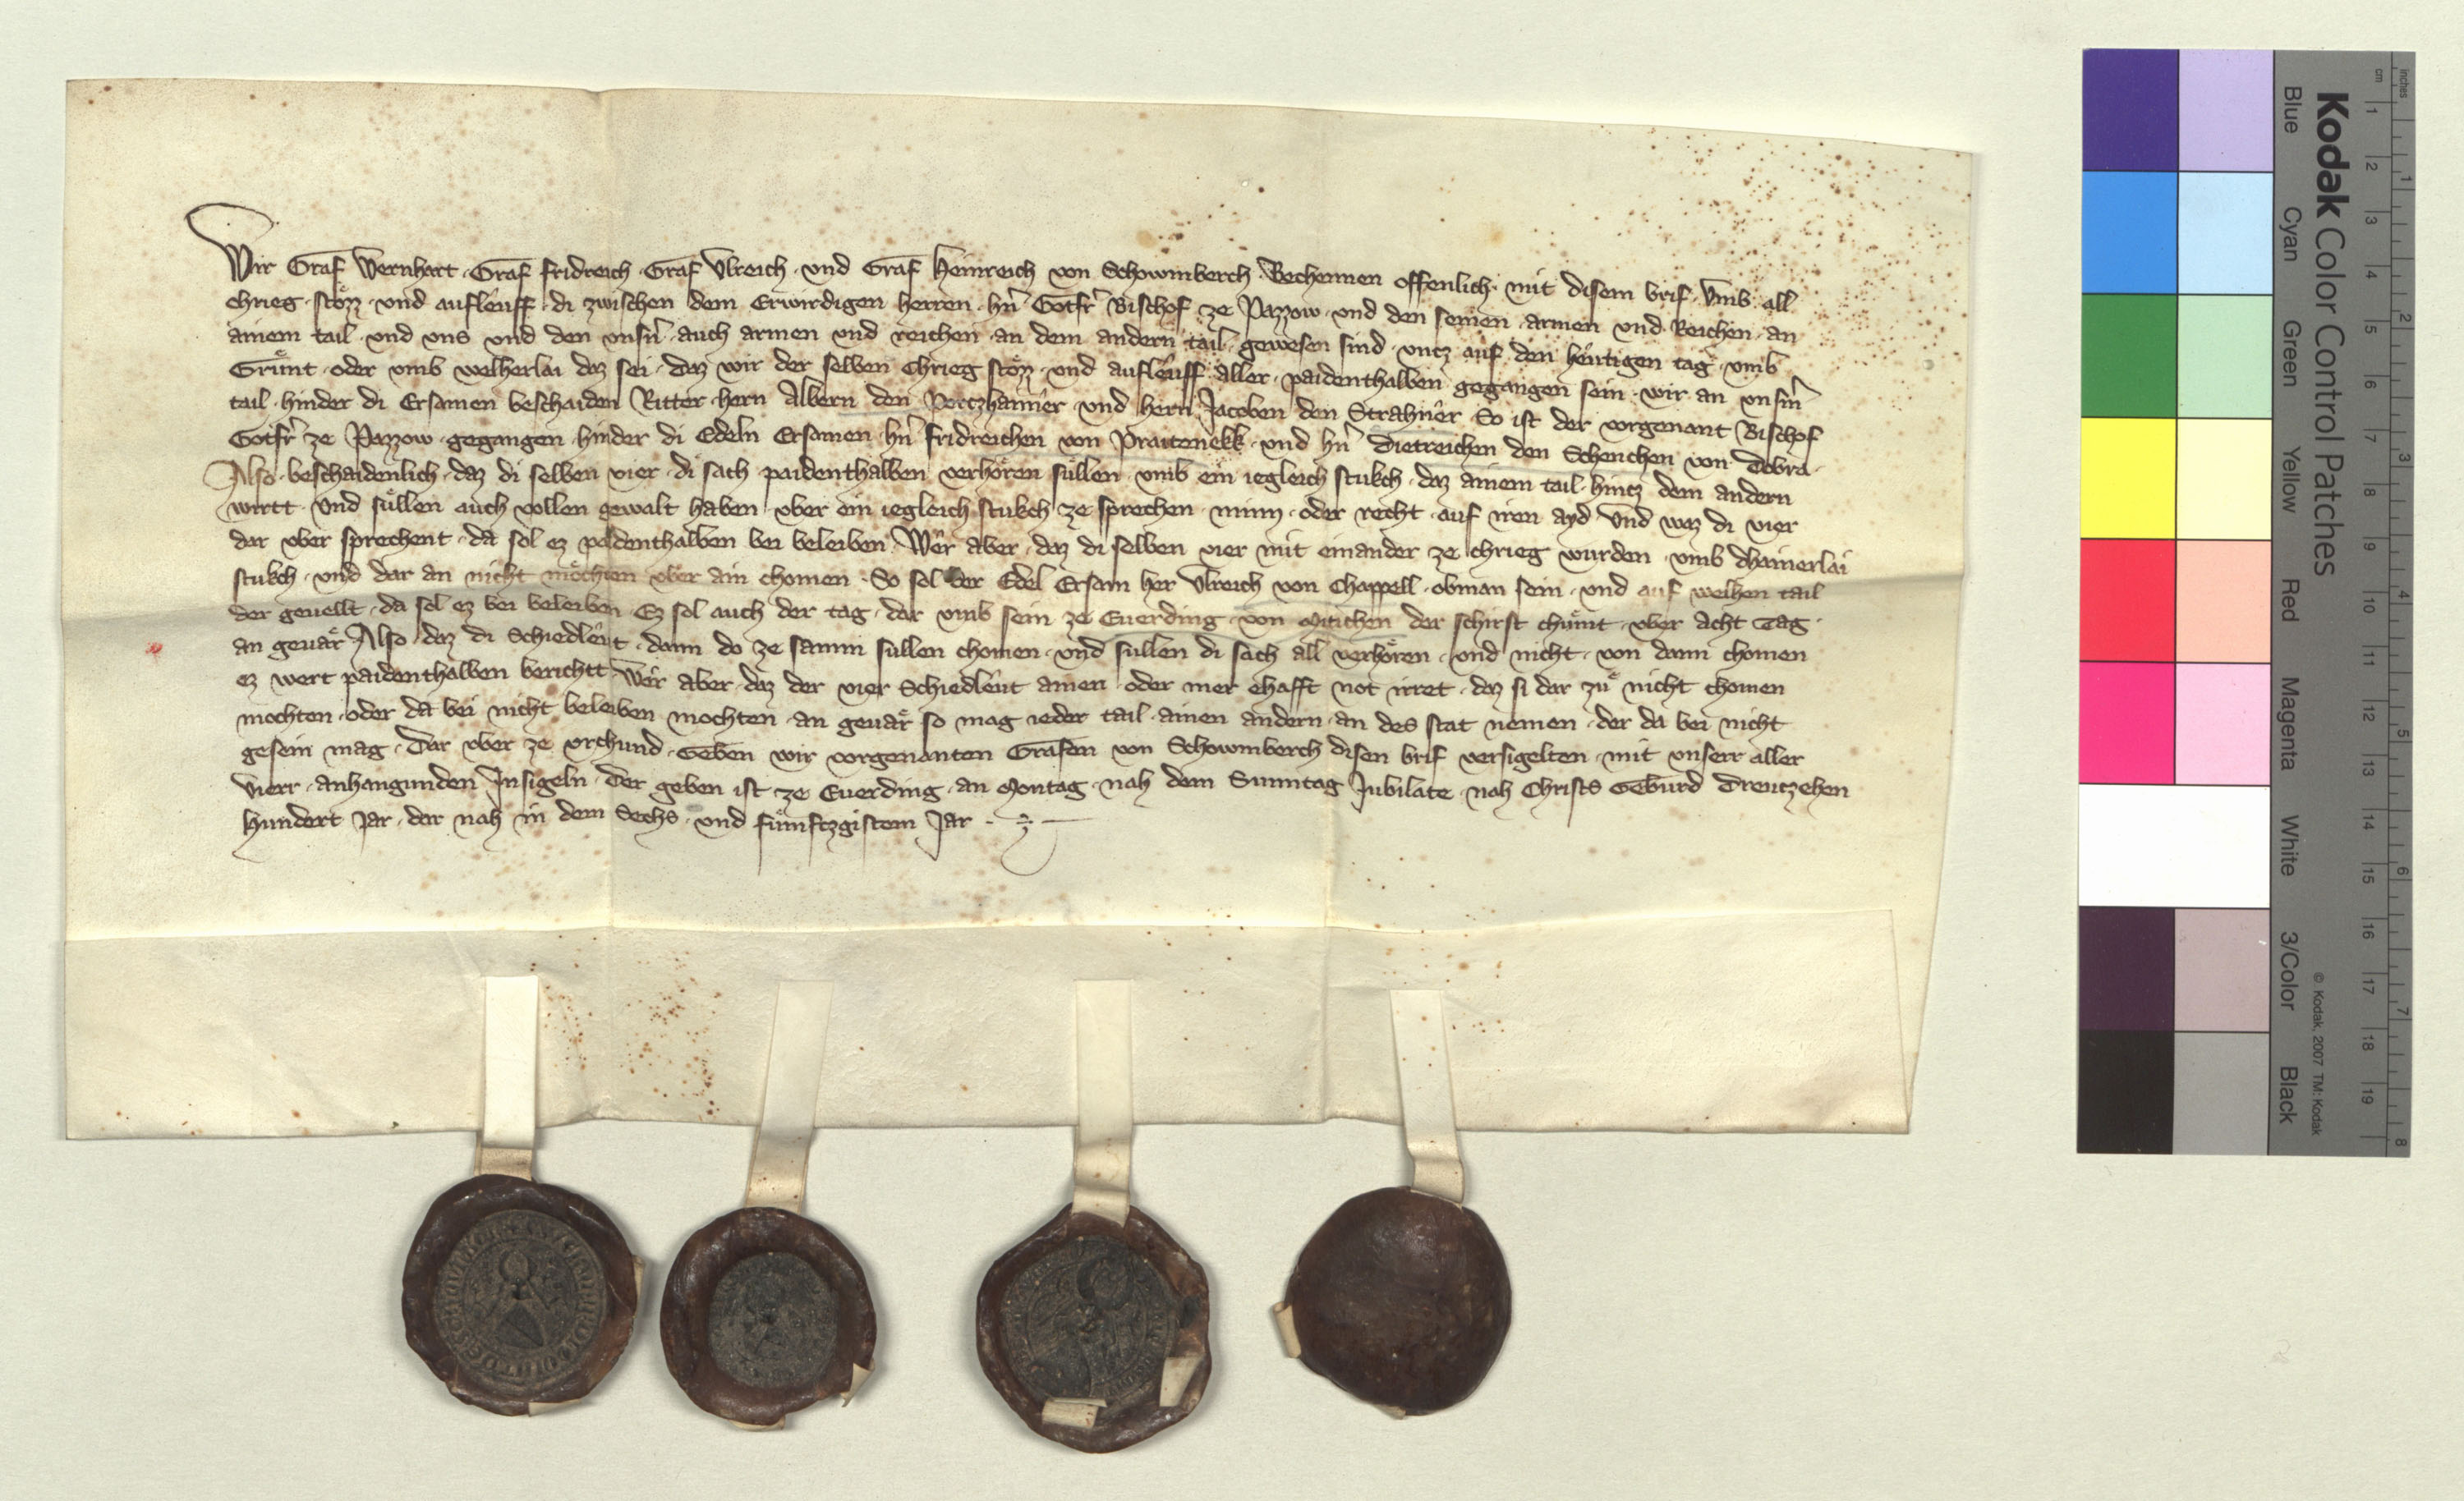 Wir Graf Wernhart · Graf fridreich · Graf Vlreich · vnd Graf Heinreich von Schowmberch · Bechennen offenlich · mit disem brif · Vmb all
chrieg · stözz · vnd auflêuff · di zwischen dem Erwirdigen herren · hn̄ Gotfr̄ Bischof ze Pazzow · vnd den seinen · armen vnd Reichen · an
ainem tail · vnd vns vnd den vnsn̄ · auch armen vnd reichen · an dem andern tail · gewesen sind · vntz auf den hêutigen tag · vmb
Grünt · oder vmb welherlai daz sei · daz wir der selben chrieg stözz · vnd auflêuff aller · paidenthalben gegangen sein · wir an vnsm̄
tail · hinder di Ersamen beschaiden Ritter · hern Albern den Portzhaimêr · vnd hern Jacoben den Strahnêr · So ist der vorgenant Bischof
Gotfr̄ ze Pazzow · gegangen · hinder di Edeln Ersamen · hn̄ fridreichen von Praitenekk · vnd hn̄ Dietreichen den Schenchen von Dobra ·
Also · beschaidenlich · daz di selben vier · di sach · paidenthalben verhören süllen · vmb ein iegleich stukch · daz ainem tail · hintz dem andern
wirtt · Vnd süllen auch vollen gewalt haben · vber ein iegleich stukch ze sprechen · minn · oder recht · auf iren ayd Vnd waz di vier
dar vber sprechent · da sol ez paidenthalben bei beleiben · Wêr aber · daz di selben vier mit einander ze chrieg wurden · vmb dhainerlai
stukch · vnd dar an nicht möchten vber ain chomen · So sol der Edel Ersam her Vlreich von Chappell · obman sein · vnd auf welhen tail
der geuellt · da sol ez bei beleiben · Ez sol auch der tag · dar vmb sein ze Euerding · von Mitichen der schirst chümt · vber acht Tag ·
an geuär Also · daz di Schiedlêut · dann do ze samm süllen chomen · vnd süllen di sach all verhören · vnd nicht · von dann chomen
ez wert paidenthalben berichtt Wêr aber · daz der vier Schiedlêut ainen · oder mer ehafft not irret · daz si dar zü nicht chomen
mochten · oder da bei nicht beleiben mochten · an geuär so mag ieder tail · ainen andern · an des stat nemen · der da bei nicht
gesein mag · Dar vber ze vrchund · Geben wir vorgenanten Grafen von Schowmberch disen brif versigelten · mit vnserr aller
Vierr · anhangunden Insigeln · Der geben ist ze Euerding · an Montag · nah dem Sunntag Jubilate · nah Christs Gebürd Dreutzehen
Hundert Jar · dar nah in dem Sechs · vnd fümftzgistem Jar ·
Kodak Color Control Patches
Blue Cyan Green Yellow Red Magenta White 3/Color Black
© Kodak, 2007 TM: Kodak
inches 1 2 3 4 5 6 7 8
cm 1 2 3 4 5 6 7 8 9 10 11 12 13 14 15 16 17 18 19